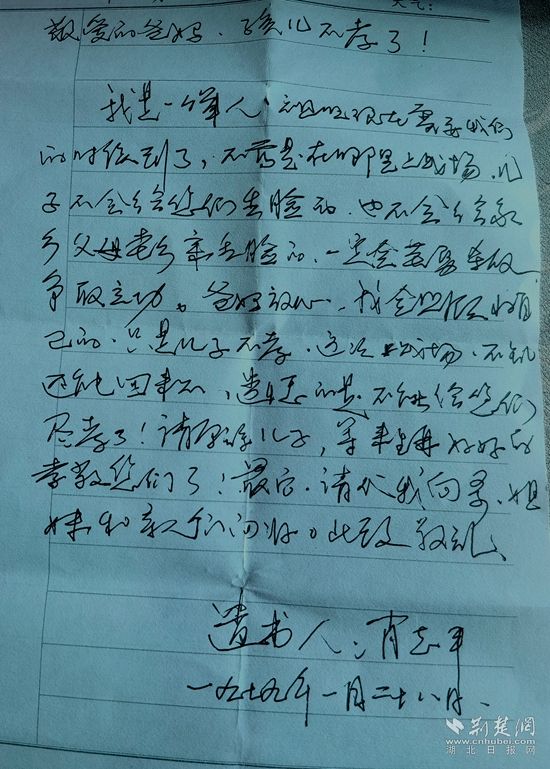 天气:
敬爱的爸妈、孩儿不孝了!
我是一个军人,祖国现在需要我们
的时候到了,不管是在哪里上战场,儿
子不会给您们丢脸的,也不会给家
乡父母老乡亲丢脸的,一定会英勇杀敌
争取立功。爸妈放心,我会照顾好自
己的,只是儿子不孝,这次上战场,不知
还能回来不,遗憾的是不能给您们
尽孝了!请原谅儿子,等来生再好好的
孝敬您们了!最后,请代我向哥、姐
妹和亲人们问好。此致敬礼、
遗书人:肖志平
一九七九年一月二十八日.
荆楚网
www.cnhubei.com
湖北日报网